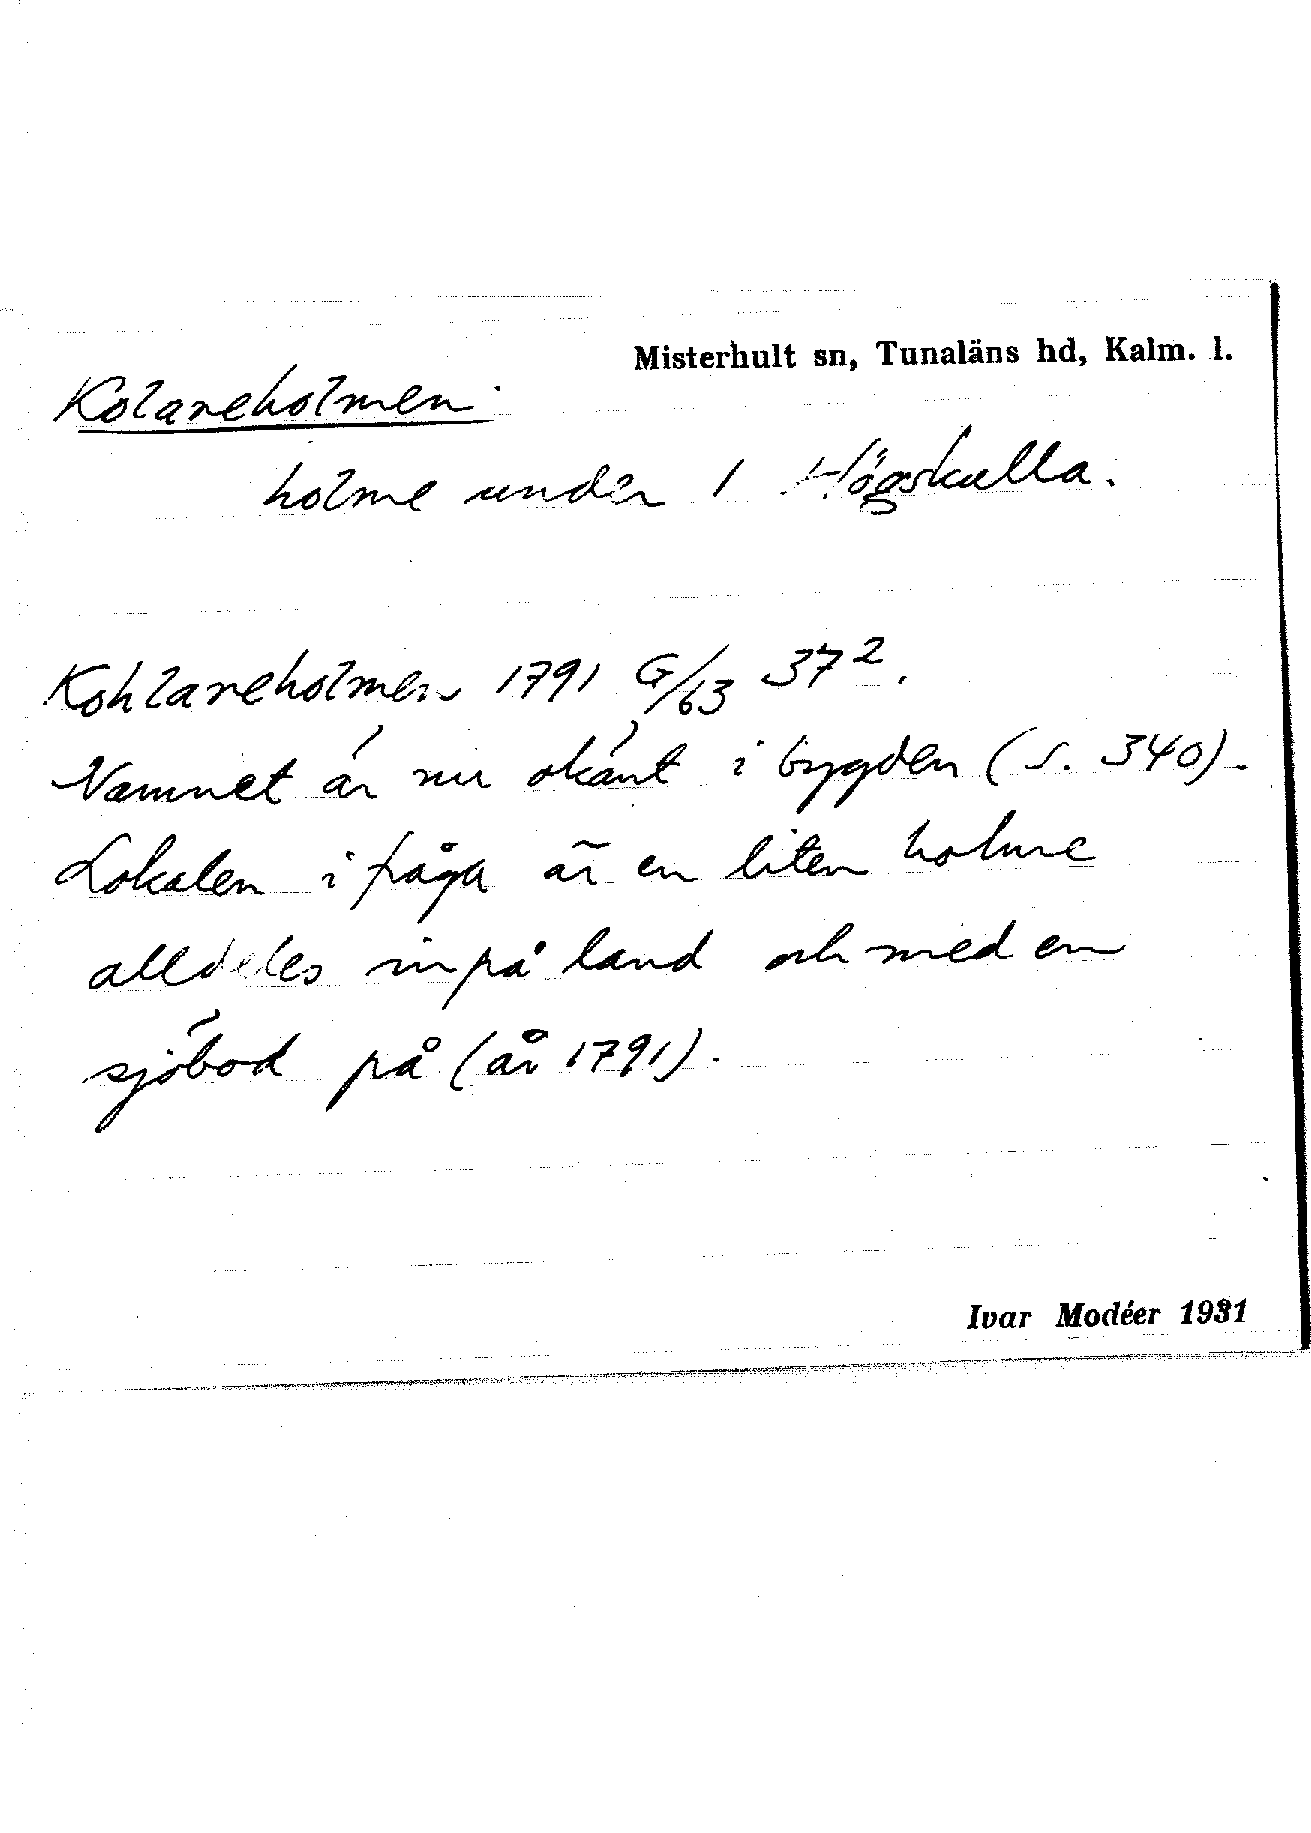 Misterhult sn, Tunaläns hd, Kalm. l.
Kolareholmen.
holme under 1 Högskulla.
Kohlareholmen 1791 G/63 37².
Namnet är nu okänt i bygden (s. 340).
Lokalen i fråga är en liten holme
alldeles inpå land och med en
sjöbod på (år 1791).
Ivar Modéer 1931